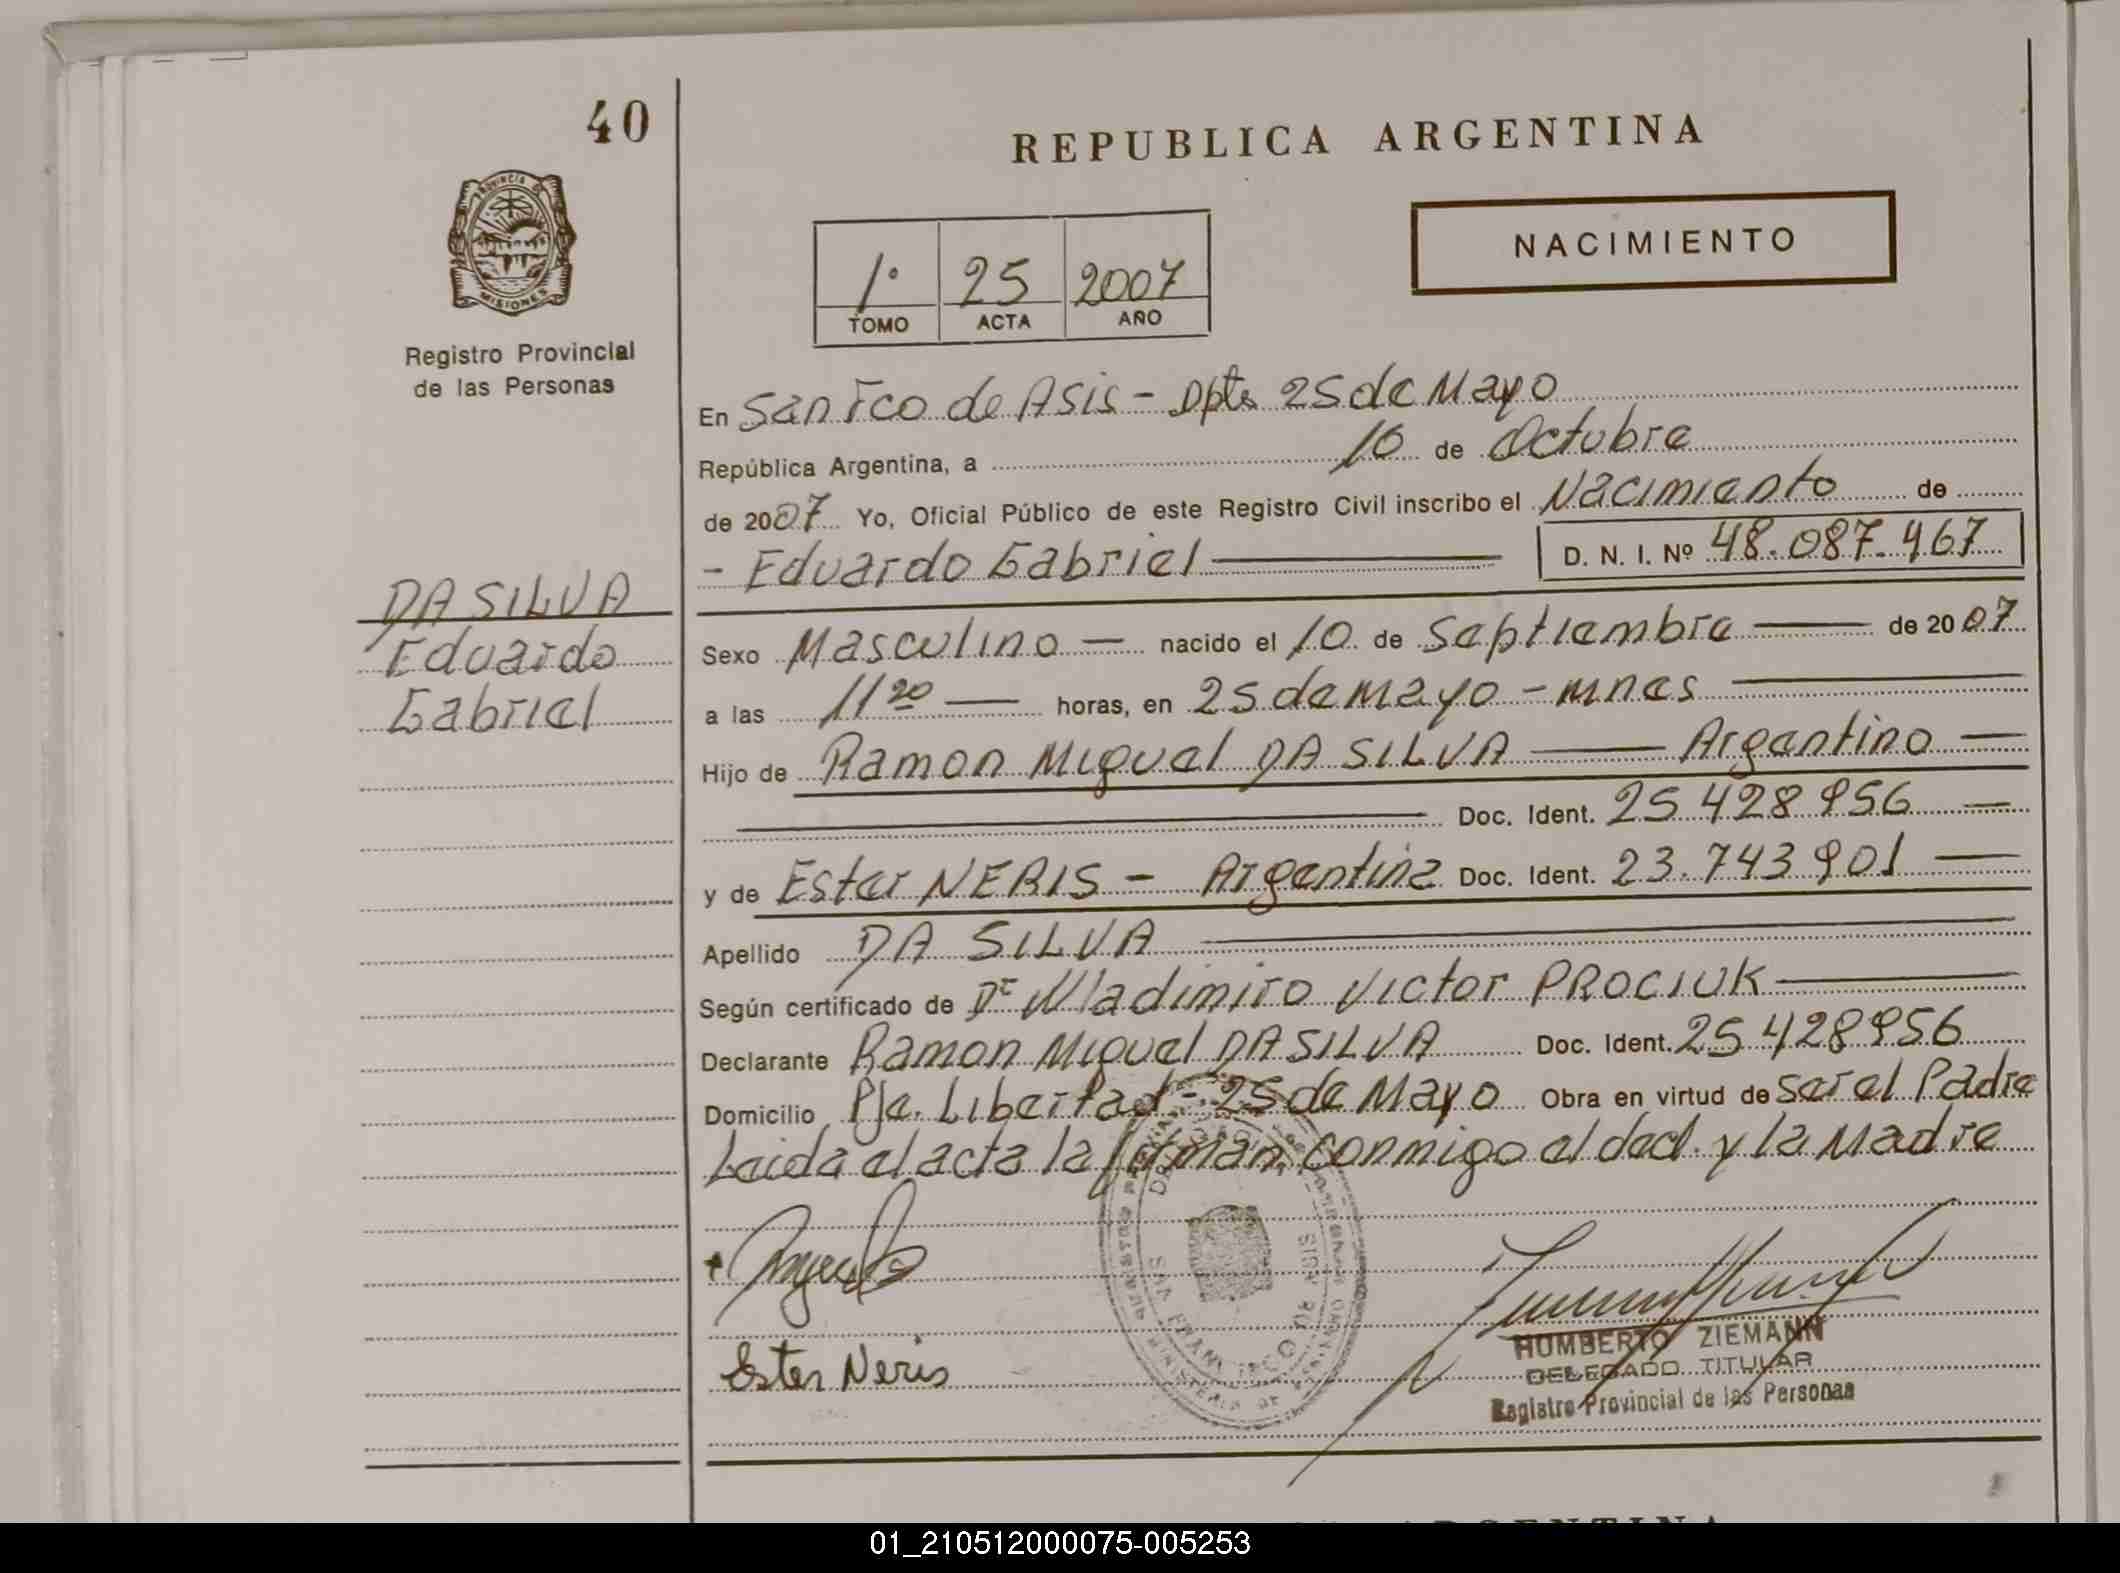 40
REPUBLICA ARGENTINA
PROVINCIA DE
MISIONES
Registro Provincial
de las Personas
1° 25 2007
TOMO ACTA AÑO
NACIMIENTO
En San Fco de Asis - Dpto 25 de Mayo
República Argentina, a 10 de Octubre
de 2007 Yo, Oficial Público de este Registro Civil inscribo el Nacimiento de
- Eduardo Gabriel D. N. I. Nº 48.087.467
DA SILVA
Eduardo
Gabriel
Sexo Masculino — nacido el 10 de Septiembre — de 2007
a las 11 20 — horas, en 25 de Mayo - Mnes
Hijo de Ramon Miguel DA SILVA — Argentino —
Doc. Ident. 25 428 956 —
y de Ester NERIS - Argentina Doc. Ident. 23.743 901 —
Apellido DA SILVA
Según certificado de Dr Wladimiro Victor PROCIUK
Declarante Ramon Miguel DA SILVA Doc. Ident. 25 428 956
Domicilio Pje. Libertad - 25 de Mayo Obra en virtud de ser el Padre
Leida el acta la firman conmigo el decl. y la Madre
Ester Neris
SAN FRANCISCO DE ASIS
MINISTERIO DE
HUMBERTO ZIEMANN
DELEGADO TITULAR
Registro Provincial de las Personas
ARGENTINA
01_210512000075-005253